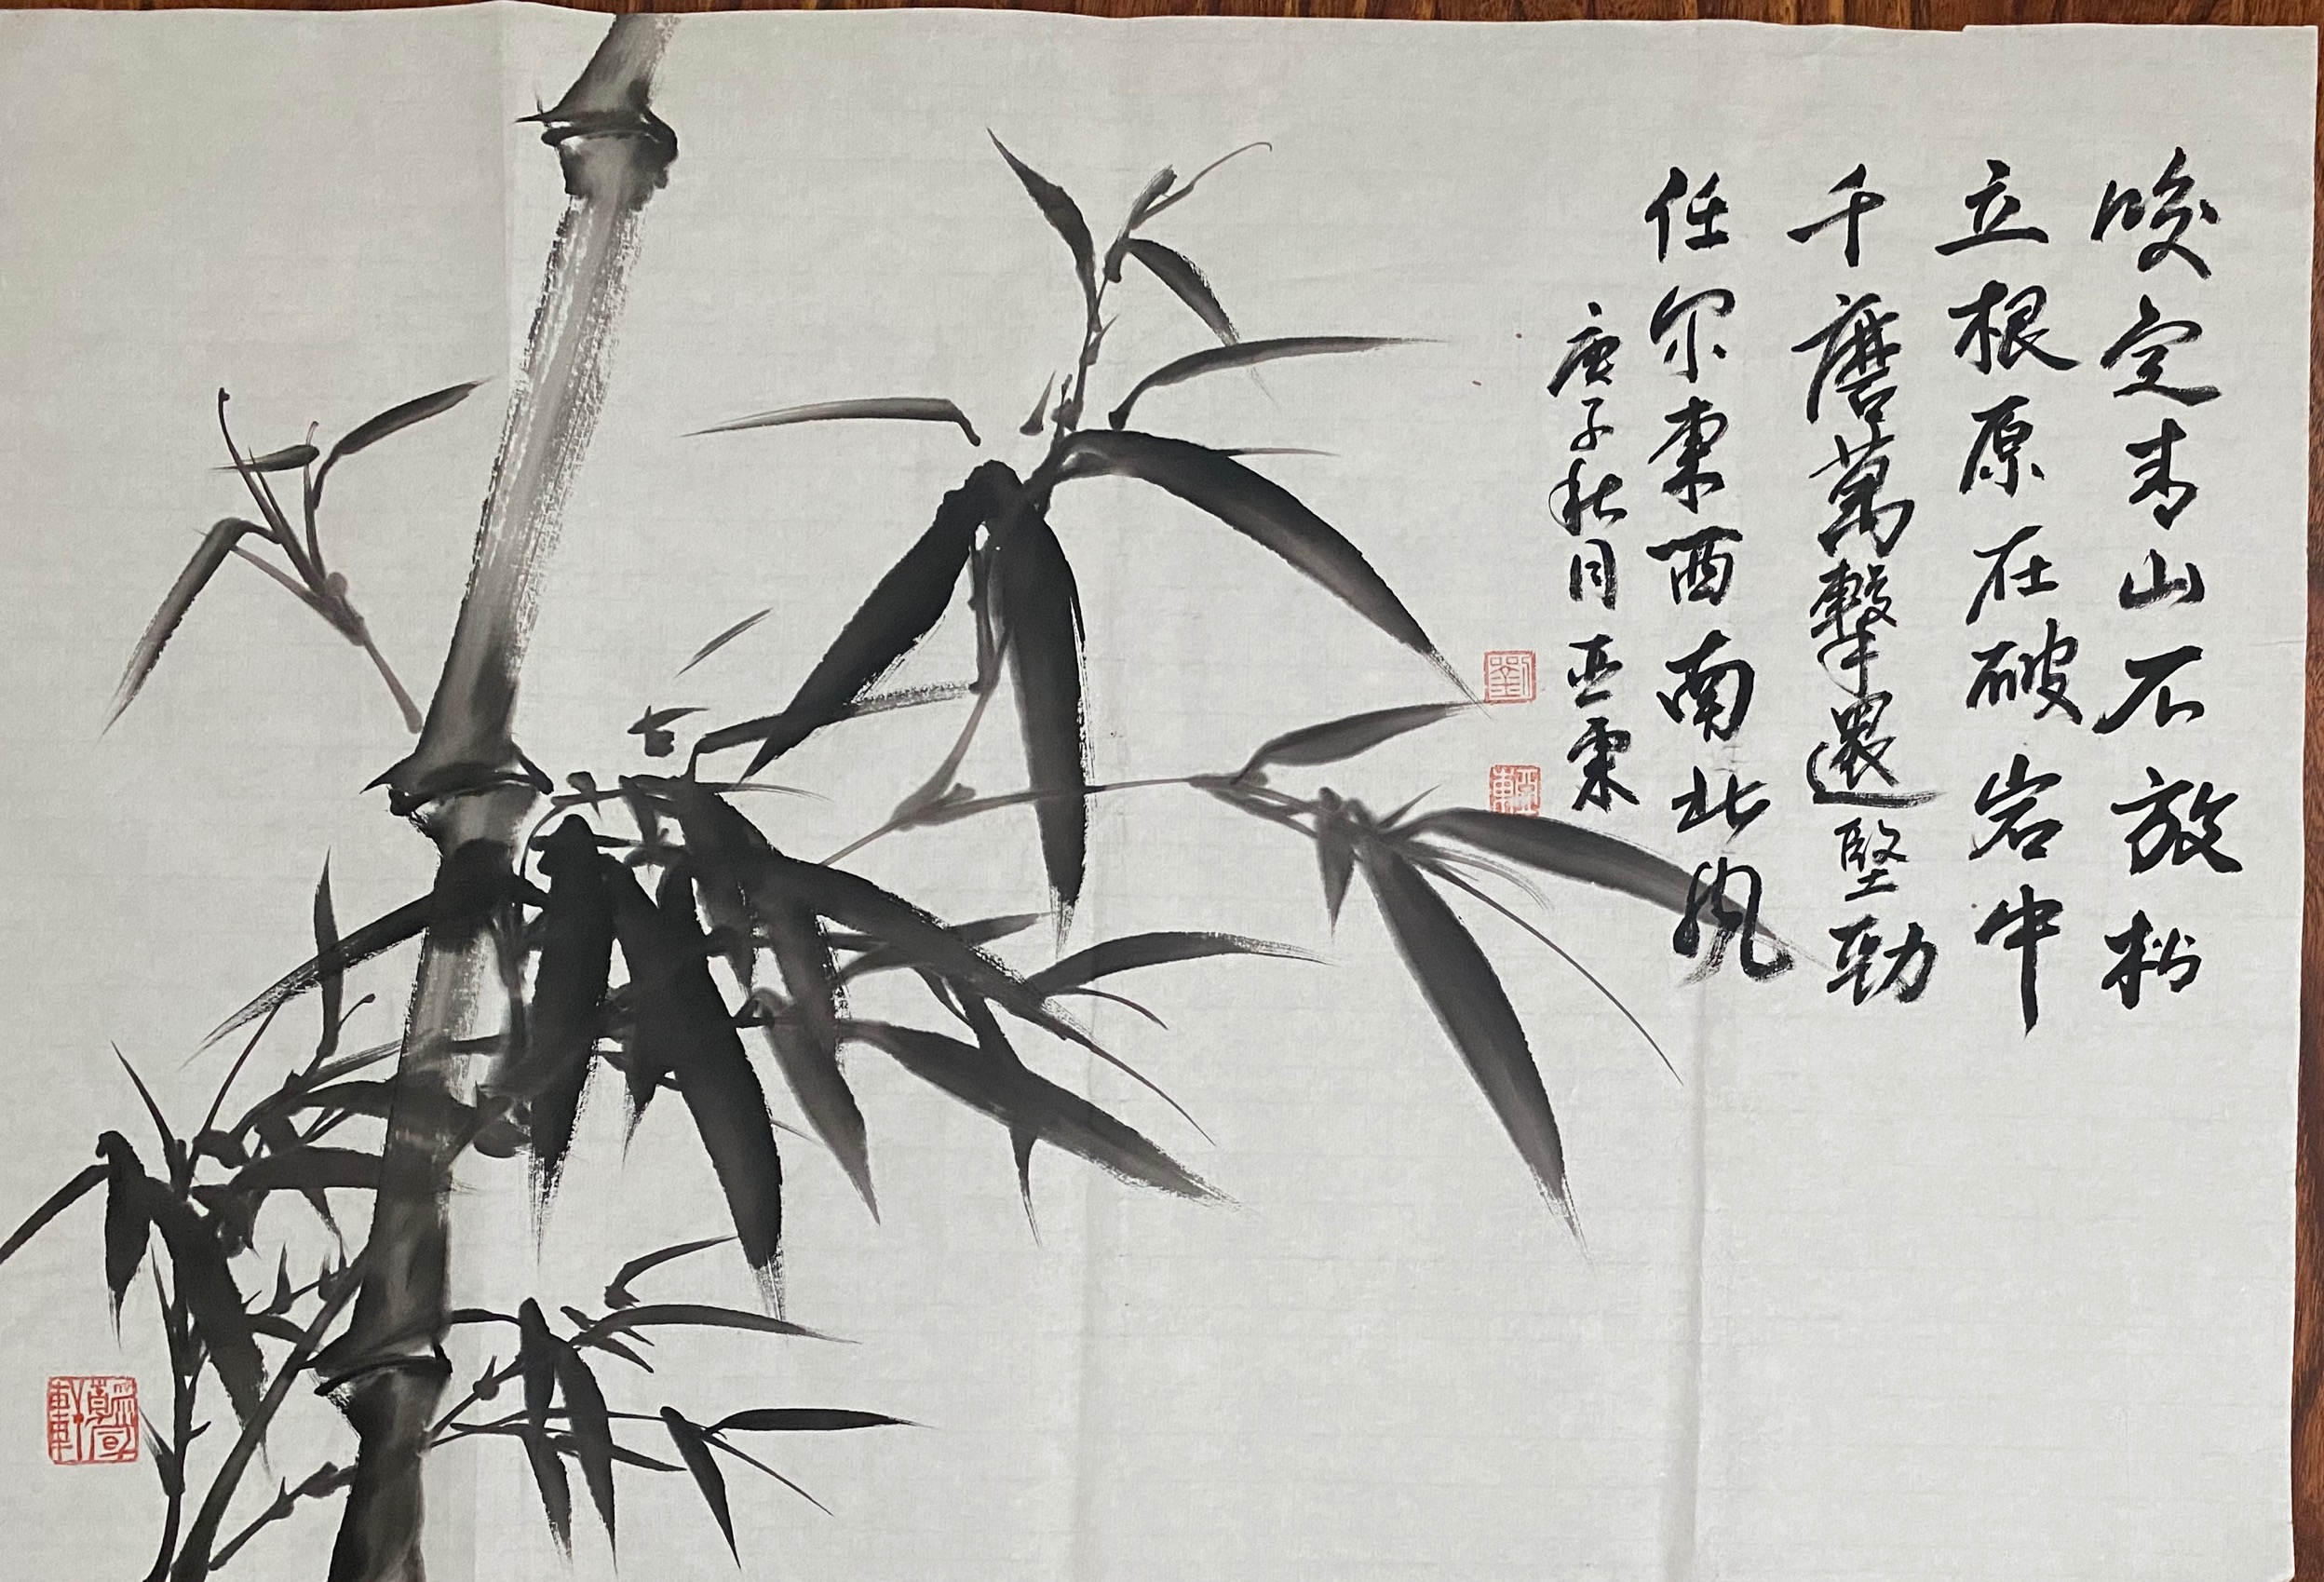 咬定青山不放松
立根原在破岩中
千磨萬擊還堅勁
任尔東西南北风
庚子秋月亚東
劉